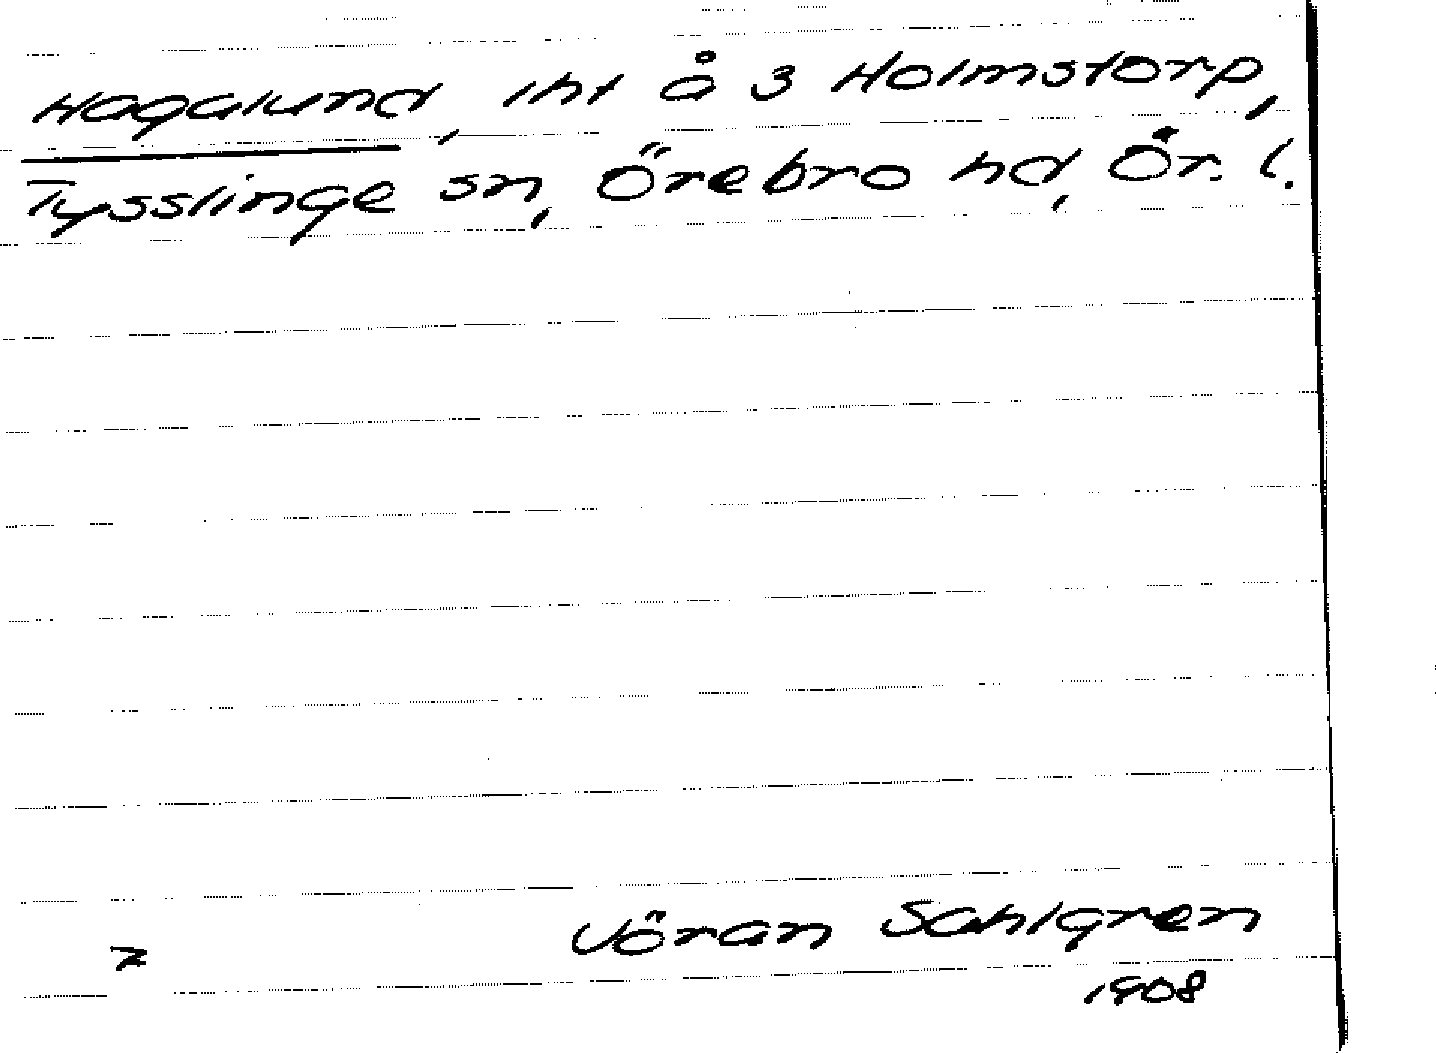 Hagalund, lht å 3 Holmstorp,
Tysslinge sn, Örebro hd, Ör. l.
Jöran Sahlgren
1908